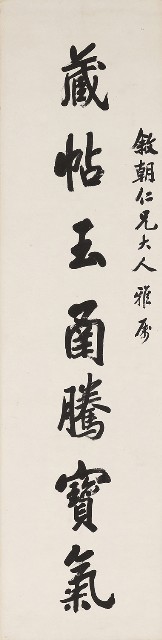 敘朝仁兄大人雅属
藏帖玉圅騰寶氣